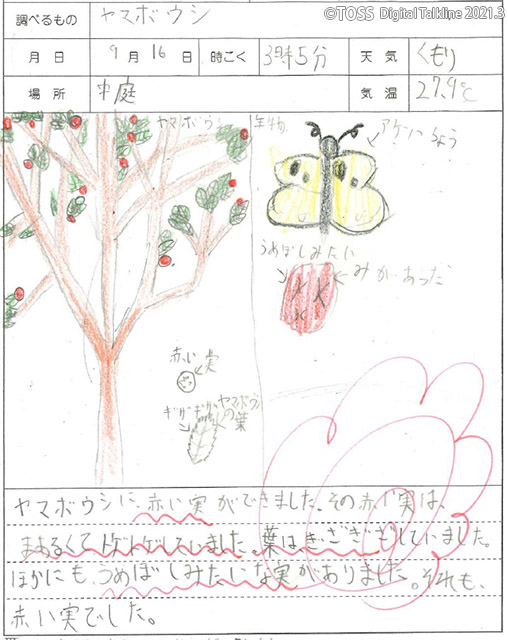 ©TOSS Digital Talkline 2021.3
調べるもの ヤマボウシ
月日 9月16日 時こく 3時5分 天気 くもり
場所 中庭 気温 27.9℃
ヤマボウシ
生物
アゲハちょう
うめぼしみたい
みがあった
赤い実
ギザギザ
ヤマボウシの葉
ヤマボウシに、赤い実ができました。その赤い実は、
まあるくてトゲトゲしていました。葉はぎざぎざしていました。
ほかにも、うめぼしみたいな実がありました。それも、
赤い実でした。